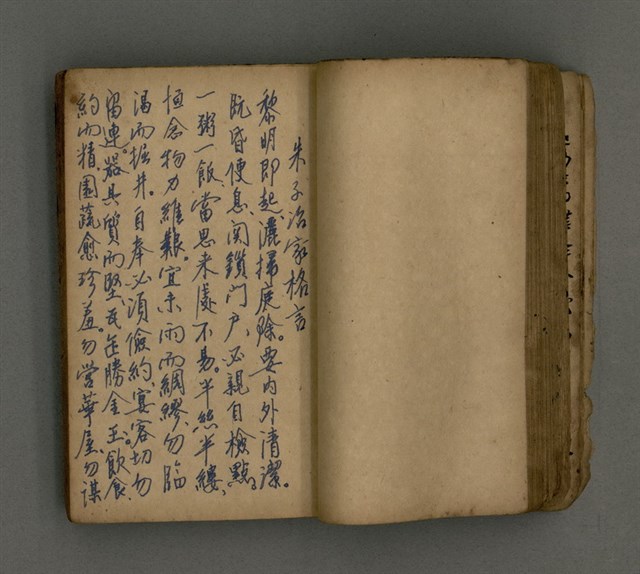 朱子治家格言
黎明即起、灑掃庭除。要内外清潔。
既昏便息、関鎖门户、必親自檢點。
一粥一飯、當思来處不易。半絲半縷、
恒念物力維艱。宜未雨而綢繆、勿臨
渴而掘井。自奉必須儉約、宴客切勿
留連。器具質而堅、瓦缶勝金玉。飲食
約而精、園蔬愈珍羞。勿營華屋、勿謀